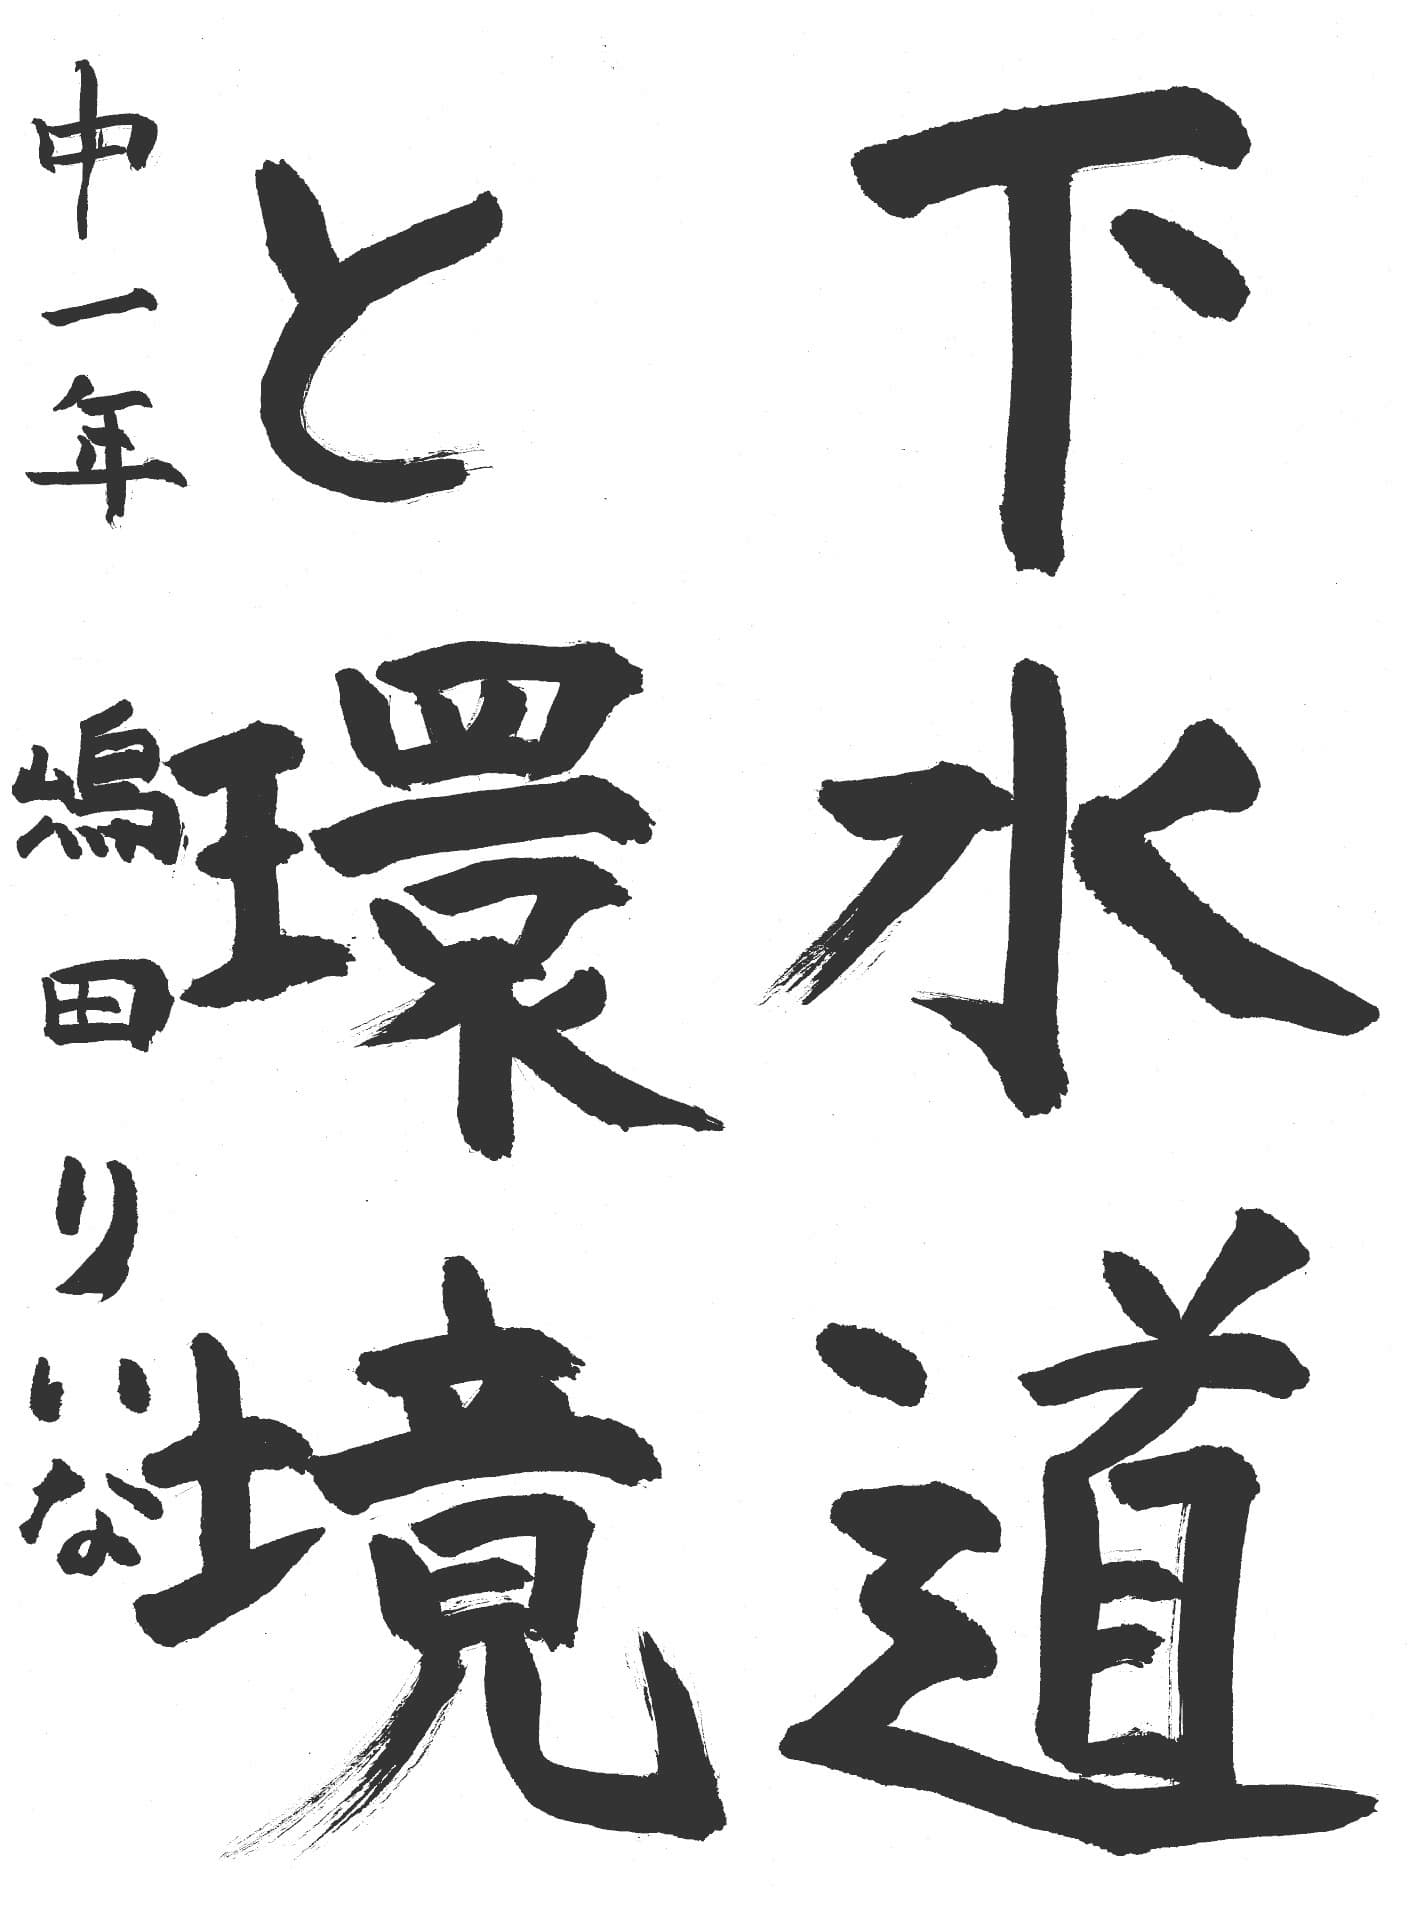 下水道
と環境
中一年 嶋田りいな